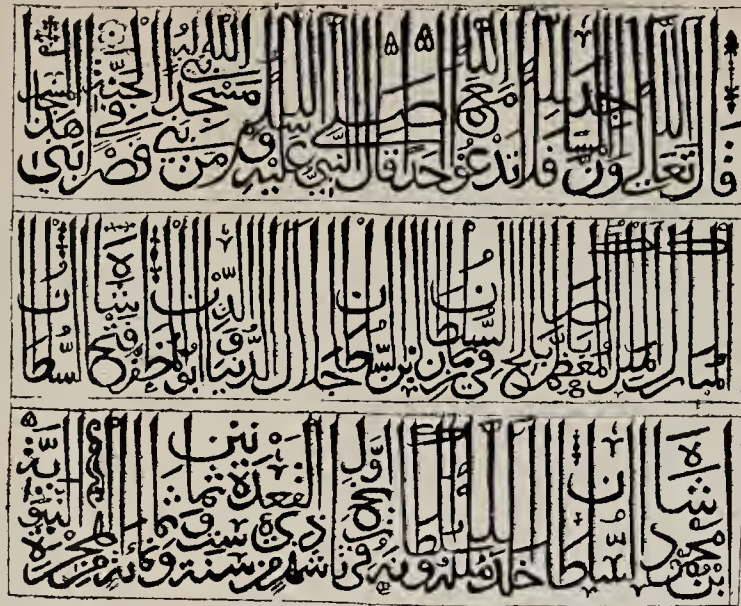 قال الله تعالى وان المسجد لله فلا تدعو مع الله احدا قال النبي صلى الله عليه وسلم من بنى مسجد الله بنى الله له قصر في الجنة بنى هذا المسجد
المبارك الملك المعظم بابا صالح في زمان السلطان بن السلطان جلال الدنيا والدين ابو المظفر فتح شاه السلطان
بن محمود شاه السلطان خلد الله ملكه وسلطانه في تاريخ اول شهر ذي القعدة سنة ست وثمانين وثمانمائة من الهجرة النبوية